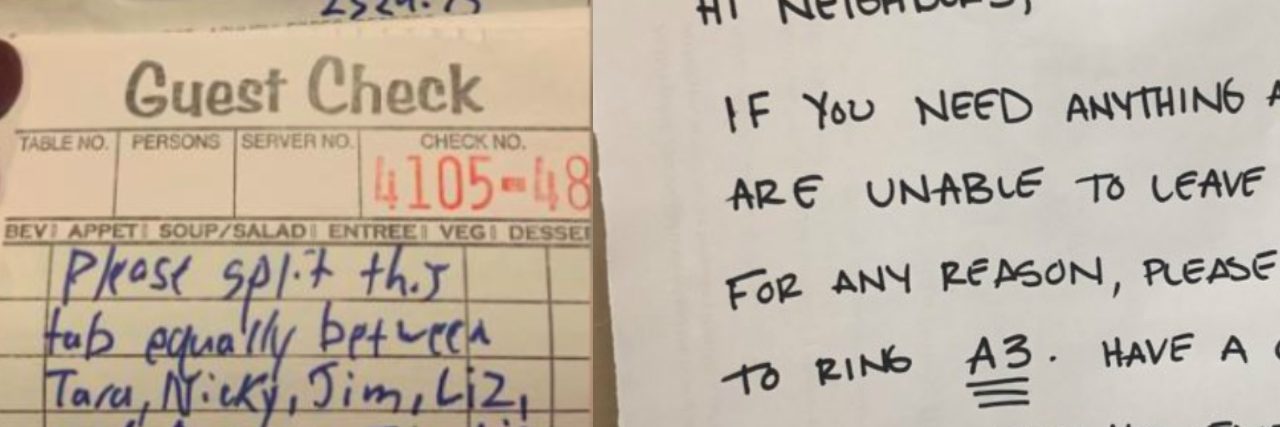 Guest Check
TABLE NO. PERSONS SERVER NO. CHECK NO.
4105-48
BEV APPET SOUP/SALAD ENTREE VEG DESSE
Please split this
tab equally between
Tara, Nicky, Jim, Liz,
HI NEIGHBORS,
IF YOU NEED ANYTHING A
ARE UNABLE TO LEAVE
FOR ANY REASON, PLEASE
TO RING A3. HAVE A